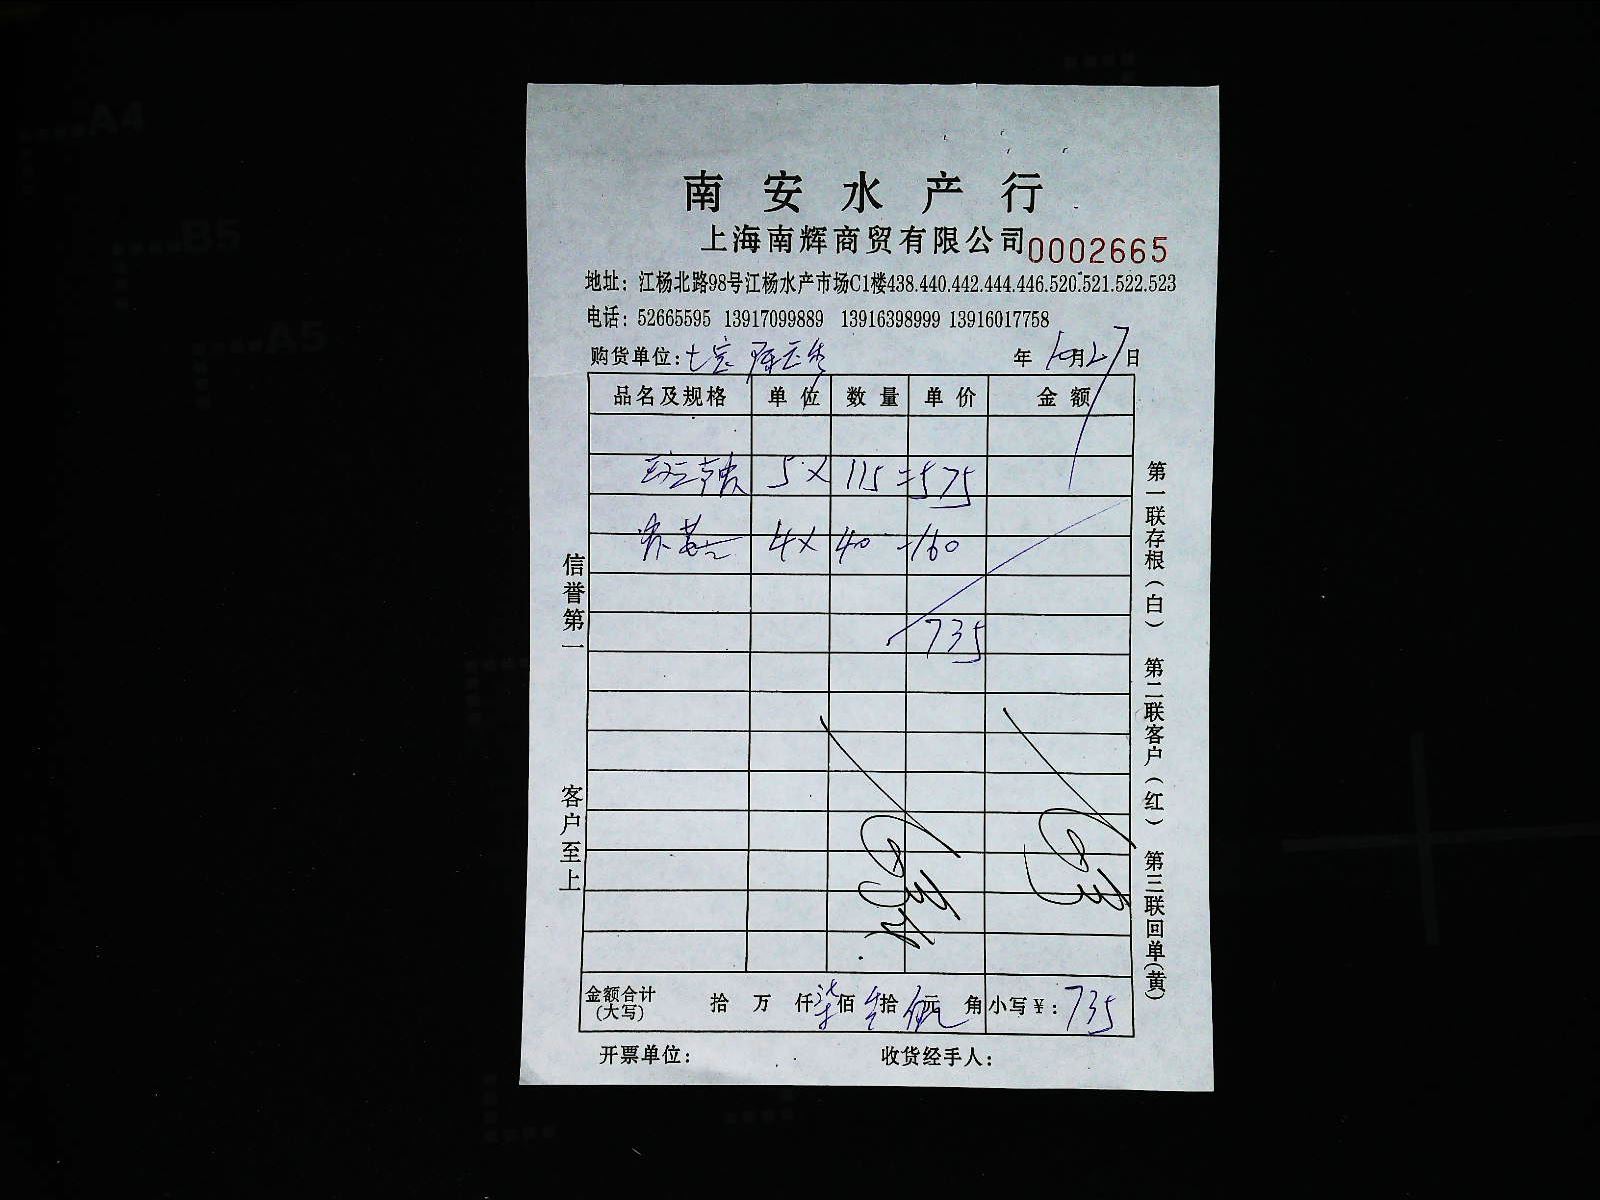 南安水产行
上海南辉商贸有限公司 0002665
地址：江杨北路98号江杨水产市场C1楼438.440.442.444.446.520.521.522.523
电话：52665595 13917099889 13916398999 13916017758
购货单位：七宝 年 10月27日
品名及规格 单位 数量 单价 金额
5× 115 =575
4× 40 =160
735
信誉第一
客户至上
第一联存根（白） 第二联客户（红） 第三联回单（黄）
金额合计（大写） 拾 万 仟 柒佰 叁拾 伍元 角 小写￥：735
开票单位： 收货经手人：